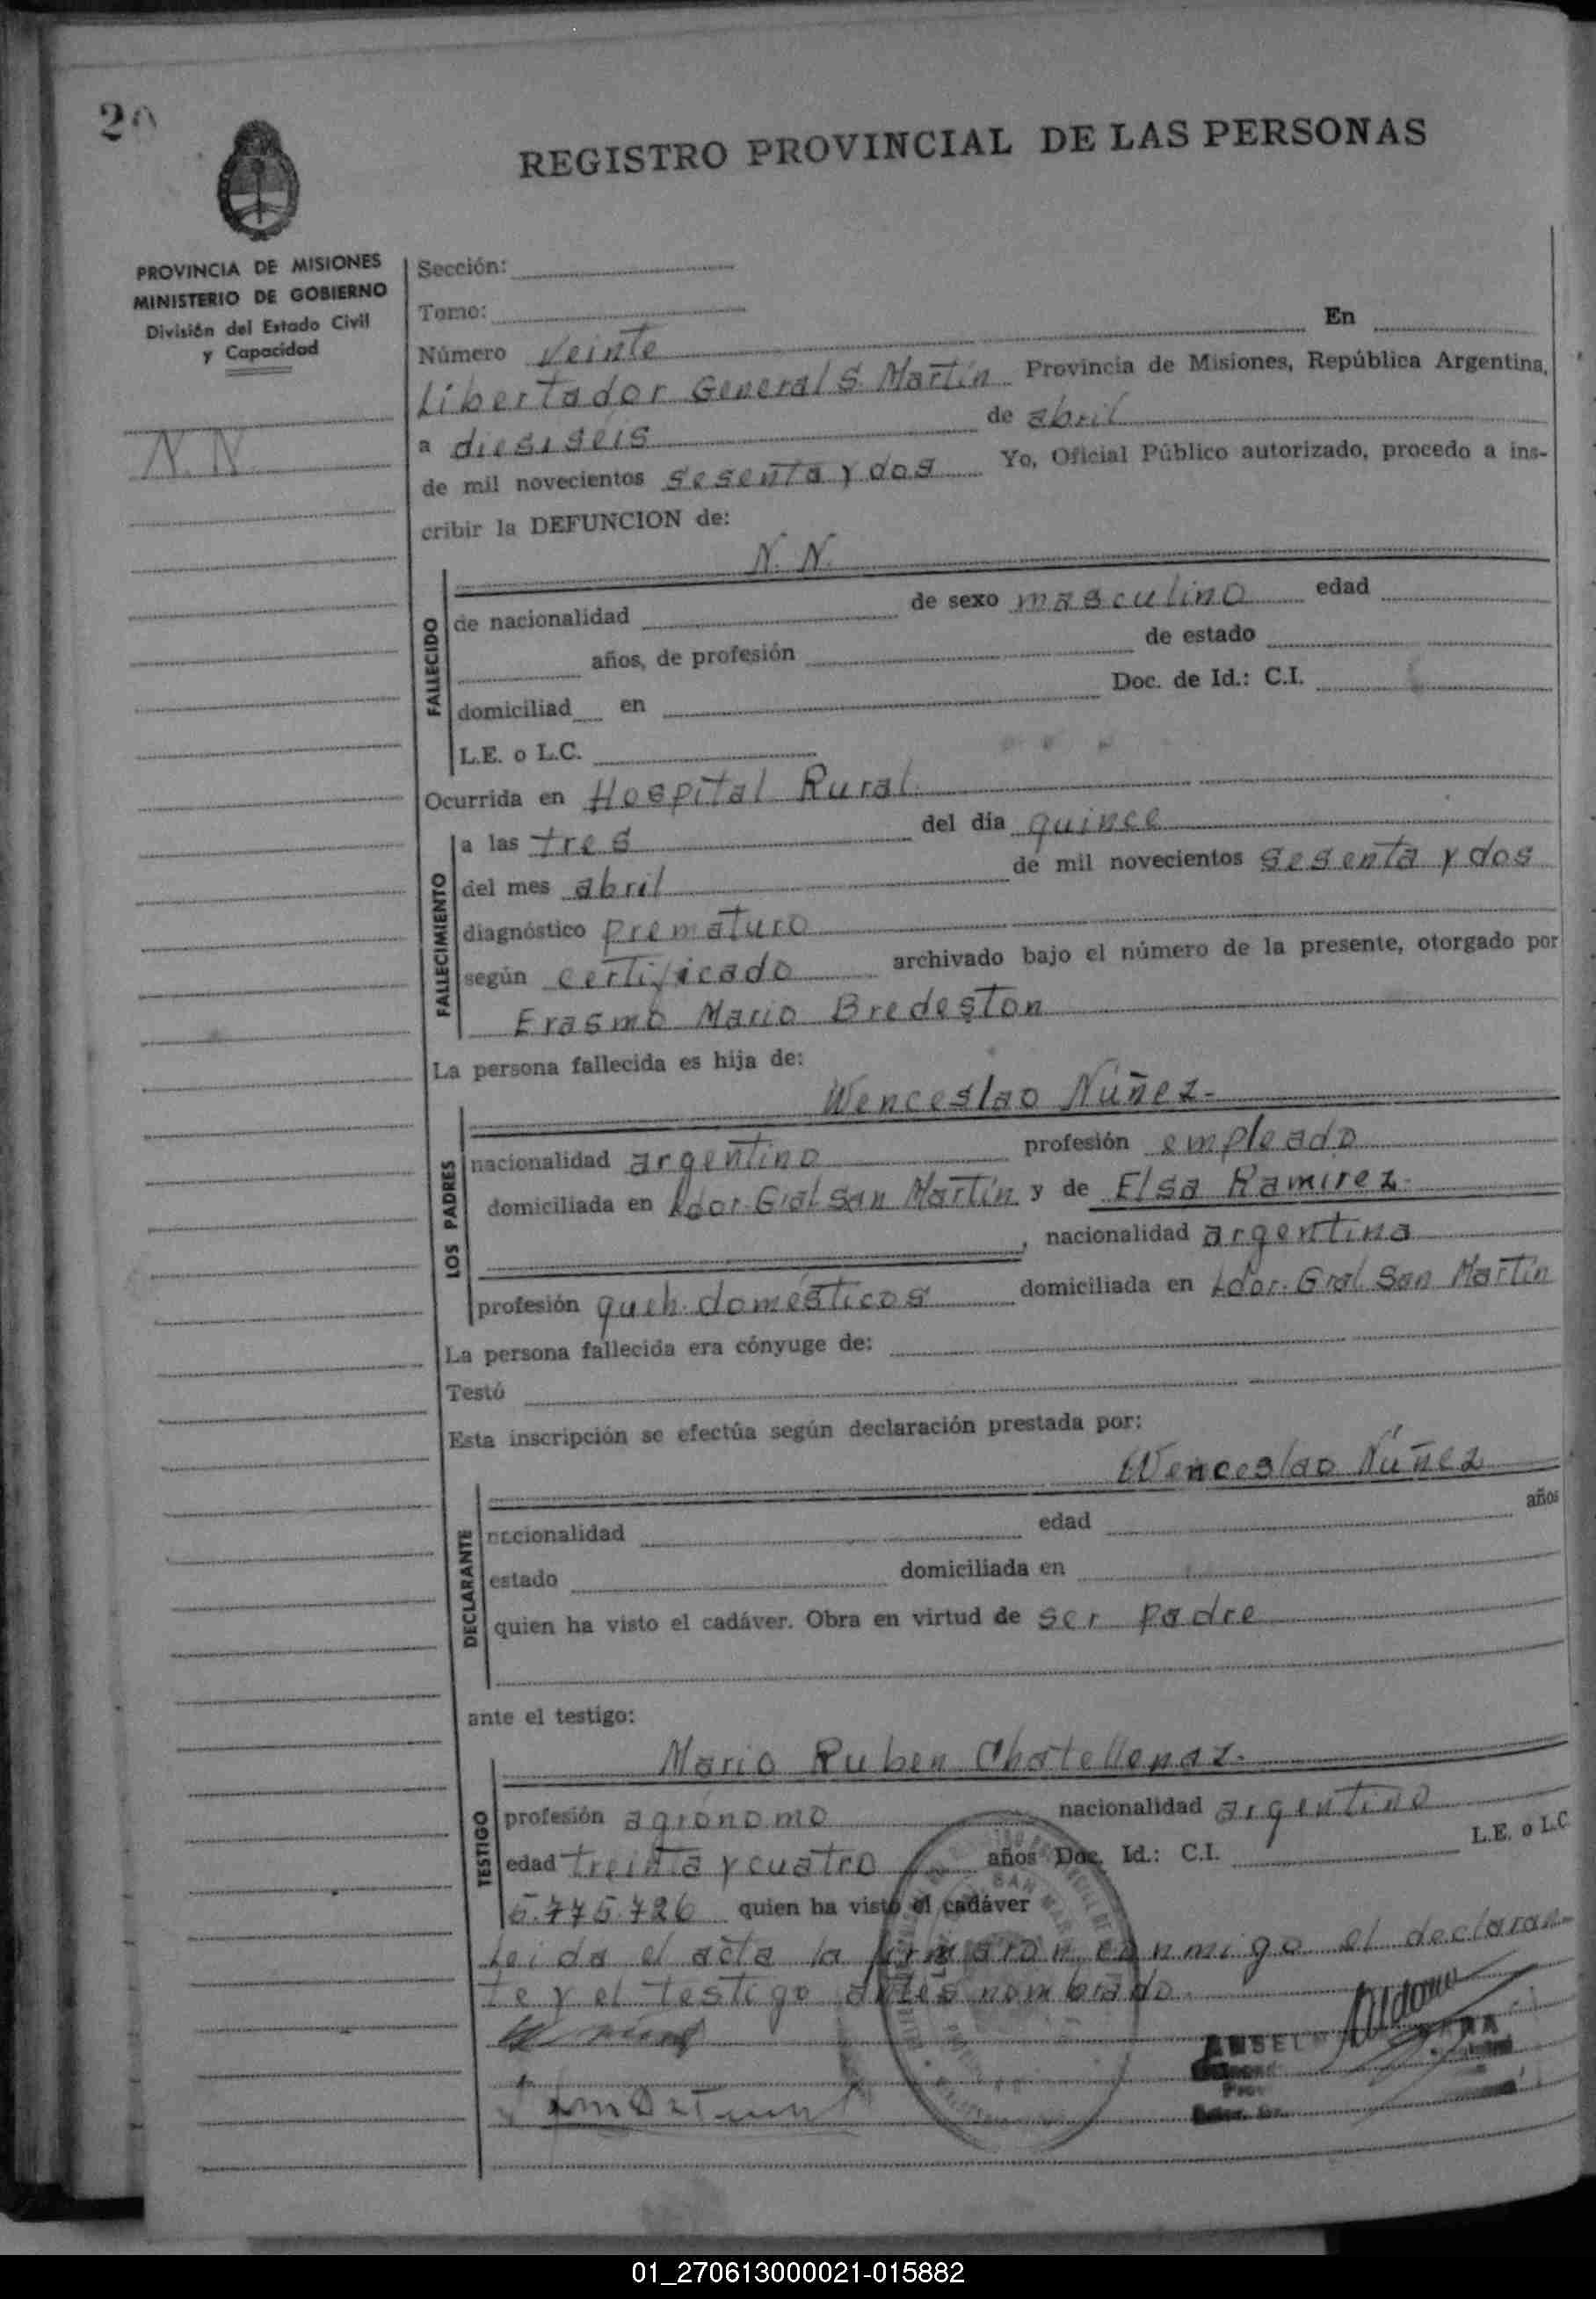 20
REGISTRO PROVINCIAL DE LAS PERSONAS
PROVINCIA DE MISIONES
MINISTERIO DE GOBIERNO
División del Estado Civil
y Capacidad
N. N.
Sección:
Tomo:
Número Veinte En
Libertador General S. Martín Provincia de Misiones, República Argentina,
a dieciseis de abril
de mil novecientos sesenta y dos Yo, Oficial Público autorizado, procedo a ins-
cribir la DEFUNCION de:
N. N.
FALLECIDO
de nacionalidad de sexo masculino edad
años, de profesión de estado
domiciliad en Doc. de Id.: C.I.
L.E. o L.C.
Ocurrida en Hospital Rural
FALLECIMIENTO
a las tres del día quince
del mes abril de mil novecientos sesenta y dos
diagnóstico prematuro
según certificado archivado bajo el número de la presente, otorgado por
Erasmo Mario Bredeston
La persona fallecida es hija de:
Wenceslao Núñez.
LOS PADRES
nacionalidad argentino profesión empleado
domiciliada en Ldor. Gral San Martín y de Elsa Ramirez.
, nacionalidad argentina
profesión queh. domésticos domiciliada en Ldor. Gral San Martín
La persona fallecida era cónyuge de:
Testó
Esta inscripción se efectúa según declaración prestada por:
Wenceslao Núñez
DECLARANTE
nacionalidad edad años
estado domiciliada en
quien ha visto el cadáver. Obra en virtud de ser padre
ante el testigo:
Mario Ruben Chatellenaz.
TESTIGO
profesión agrónomo nacionalidad argentino
edad treinta y cuatro años Doc. Id.: C.I. L.E. o L.C
5.775.726 quien ha visto el cadáver
Leida el acta la firmaron conmigo el declaran-
te y el testigo antes nombrado.
01_270613000021-015882